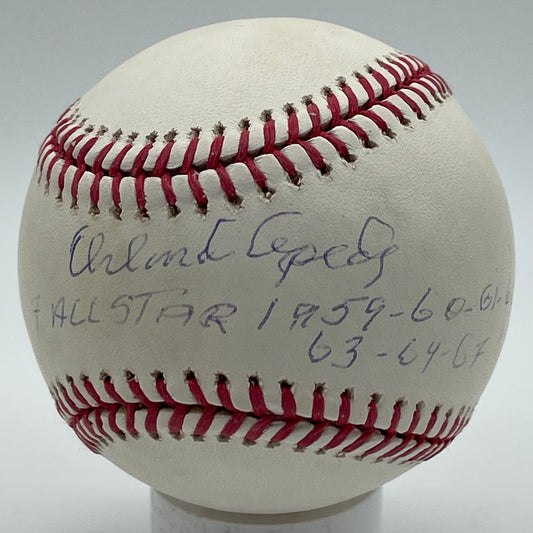 Orlando Cepeda
7 ALL STAR 1959-60-61-6
63-64-67